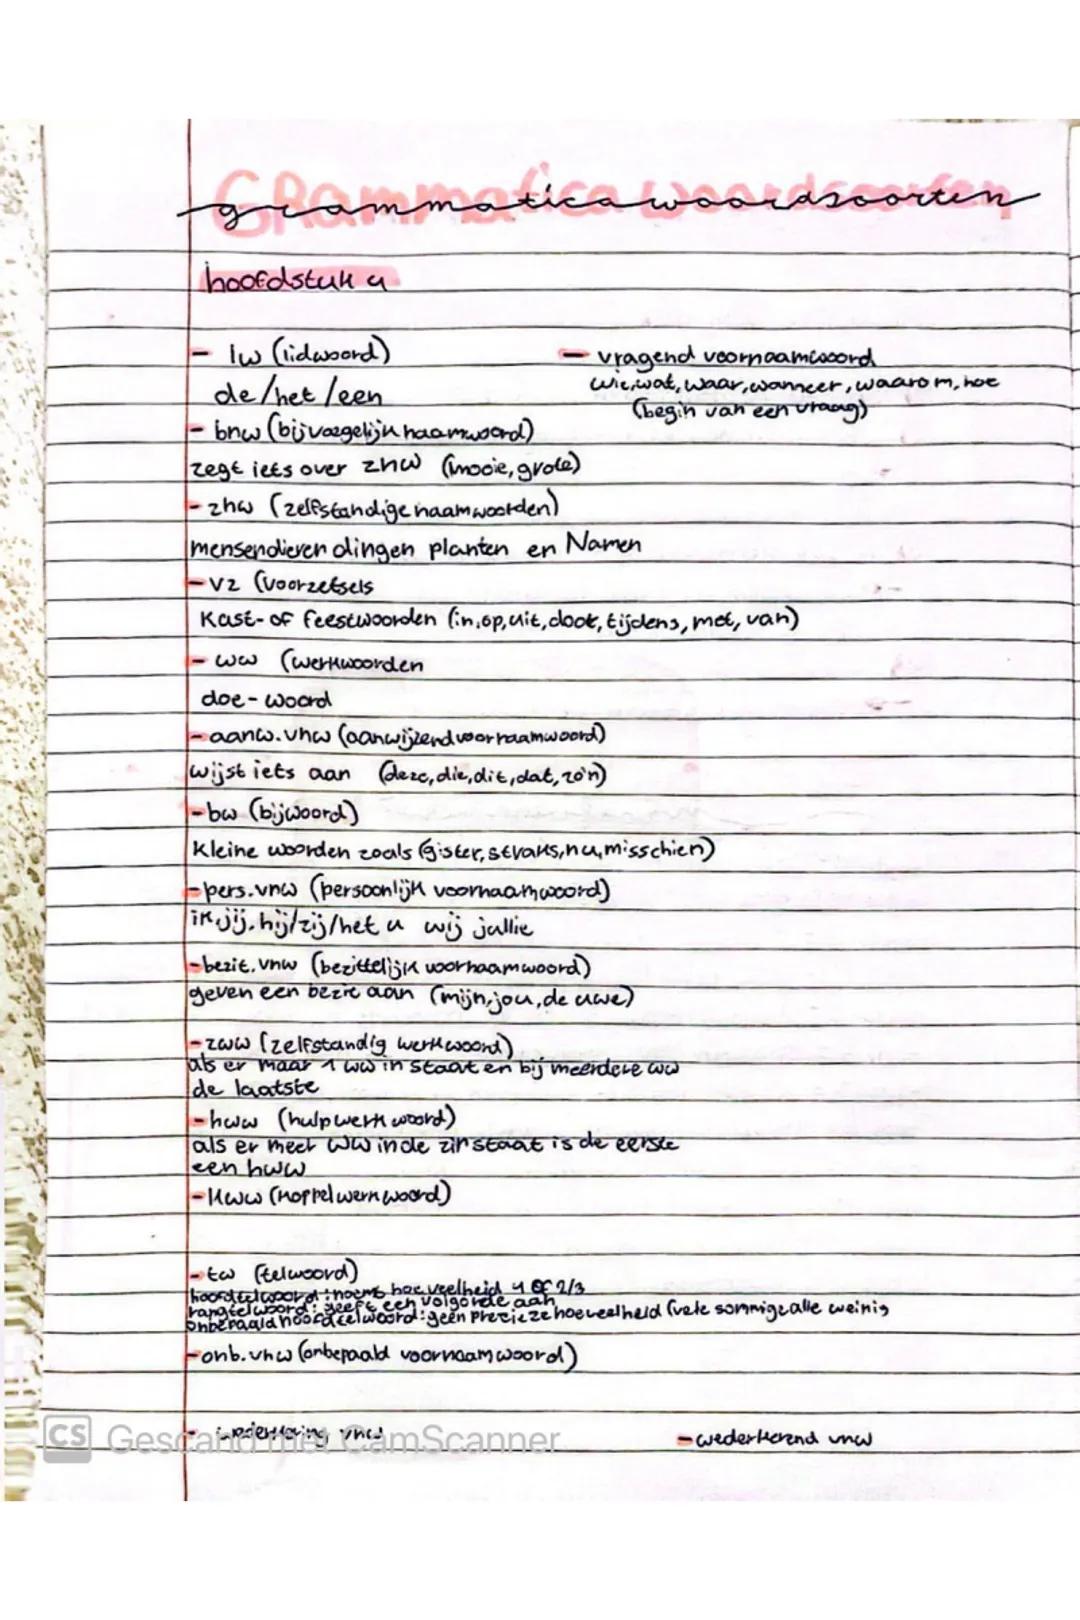 Grammatica woordsoorten
grammatica woordsoorten
hoofdstuk 4
- lw (lidwoord)
de/het/een
- vragend voornaamwoord
wie, wat, waar, wanneer, waarom, hoe
(begin van een vraag)
- bnw (bijvoegelijk naamwoord)
zegt iets over znw (mooie, grote)
- znw (zelfstandige naamwoorden)
mensen dieren dingen planten en Namen
- vz (voorzetsels
Kast- of feestwoorden (in, op, uit, door, tijdens, met, van)
- ww (werkwoorden
doe-woord
- aanw. vnw (aanwijzend voornaamwoord)
wijst iets aan (deze, die, dit, dat, zo'n)
- bw (bijwoord)
Kleine woorden zoals (gister, straks, nu, misschien)
- pers. vnw (persoonlijk voornaamwoord)
ik, jij, hij/zij/het u wij jullie
- bezit. vnw (bezittelijk voornaamwoord)
geven een bezit aan (mijn, jou, de uwe)
- zww (zelfstandig werkwoord)
als er maar 1 ww in staat en bij meerdere ww
de laatste
- hww (hulpwerkwoord)
als er meer ww in de zin staat is de eerste
een hww
- kww (koppelwerkwoord)
- tw (telwoord)
hoofdtelwoord: noemt hoeveelheid 4 of 2/3
rangtelwoord: geeft een volgorde aan
onbepaald hoofdtelwoord: geen precieze hoeveelheid (vele sommige alle weinig
- onb. vnw (onbepaald voornaamwoord)
- wederkering vnw
- wederkerend vnw
CS Gescand met CamScanner